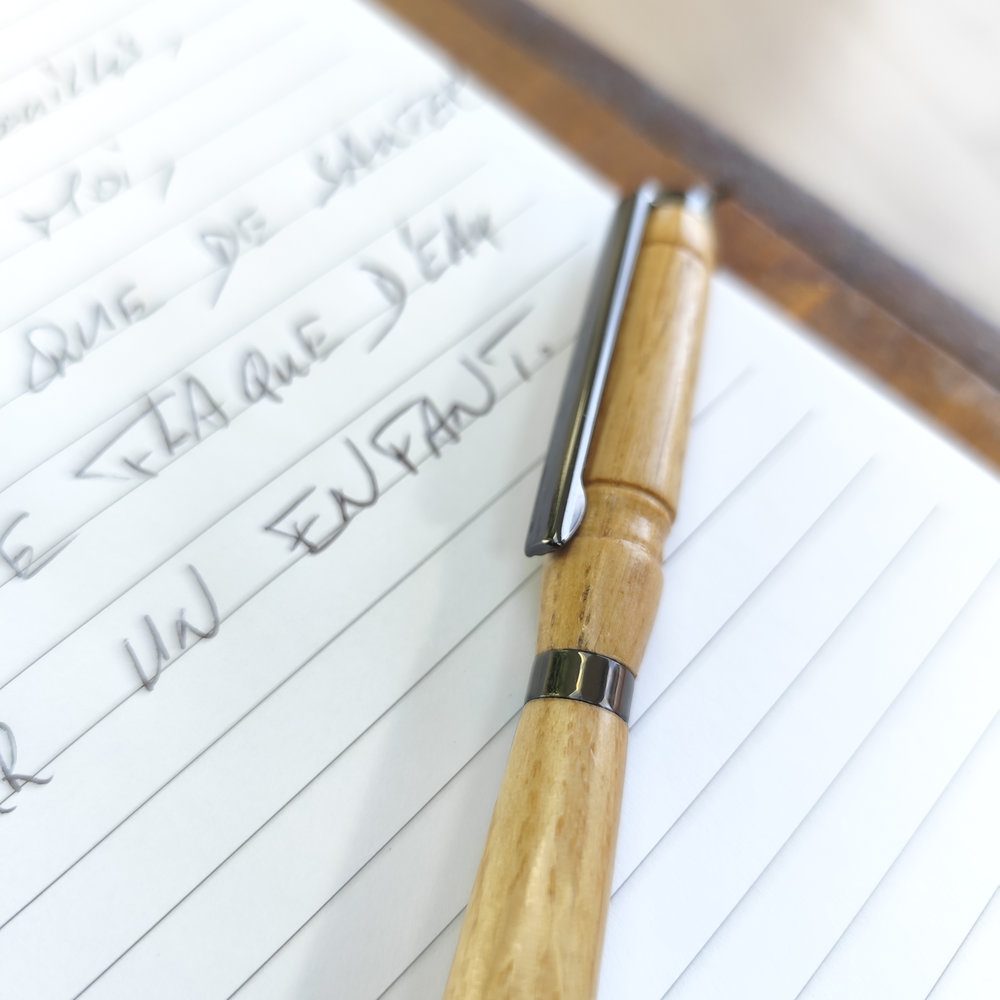 MOI,
QUE DE SAUTER
E FLAQUE D'EAU
R UN ENFANT.